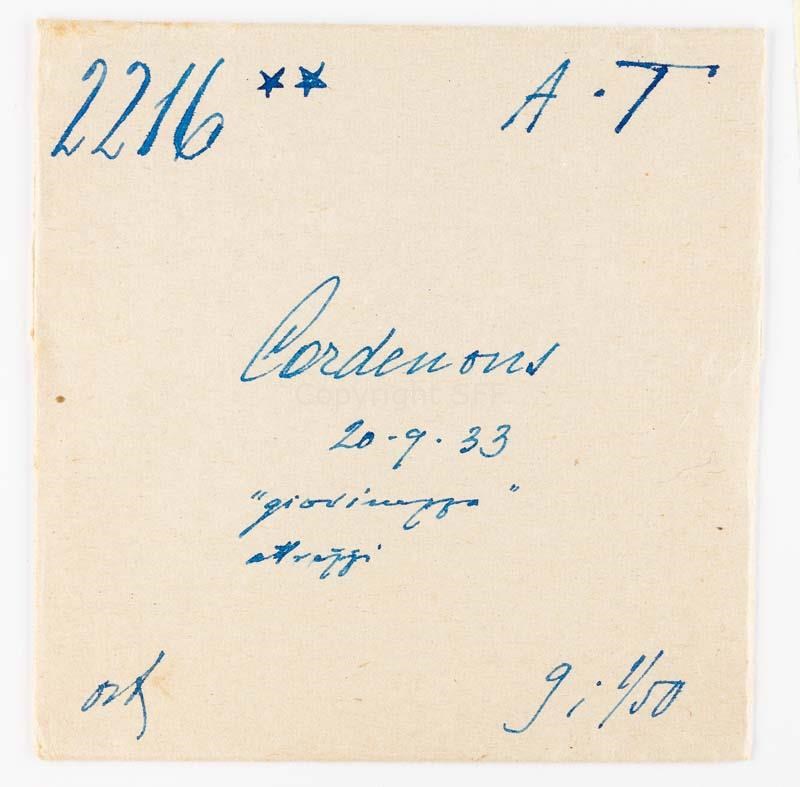 2216 ** A · T
Cordenons
Copyright SFF
20-9-33
"giovinezza"
attrezzi
9 i 1/50